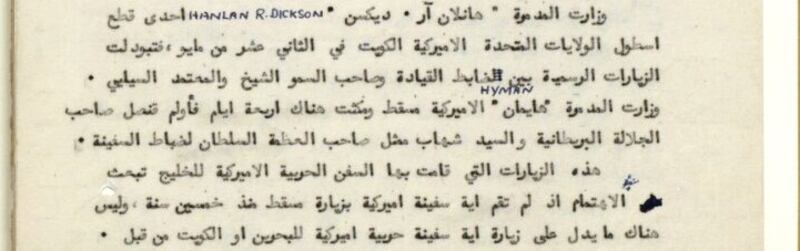 وزارت المدمرة " هانلان آر • ديكسن " HANLAN R. DICKSON احدى قطع
اسطول الولايات المتحدة الاميركية الكويت في الثاني عشر من مايو ، فتبودلت
الزيارات الرسمية بين الضابط القيادة وصاحب السمو الشيخ والمعتمد السياسي •
وزارت المدمرة " هايمان " HYMAN الاميركية مسقط ومكثت هناك اربعة ايام فأولم قنصل صاحب
الجلالة البريطانية والسيد شهاب ممثل صاحب العظمة السلطان لضباط السفينة •
هذه الزيارات التي قامت بها السفن الحربية الاميركية للخليج تبحث
الاهتمام اذ لم تقم اية سفينة اميركية بزيارة مسقط منذ خمسين سنة ، وليس
هناك ما يدل على زيارة اية سفينة حربية اميركية للبحرين او الكويت من قبل •